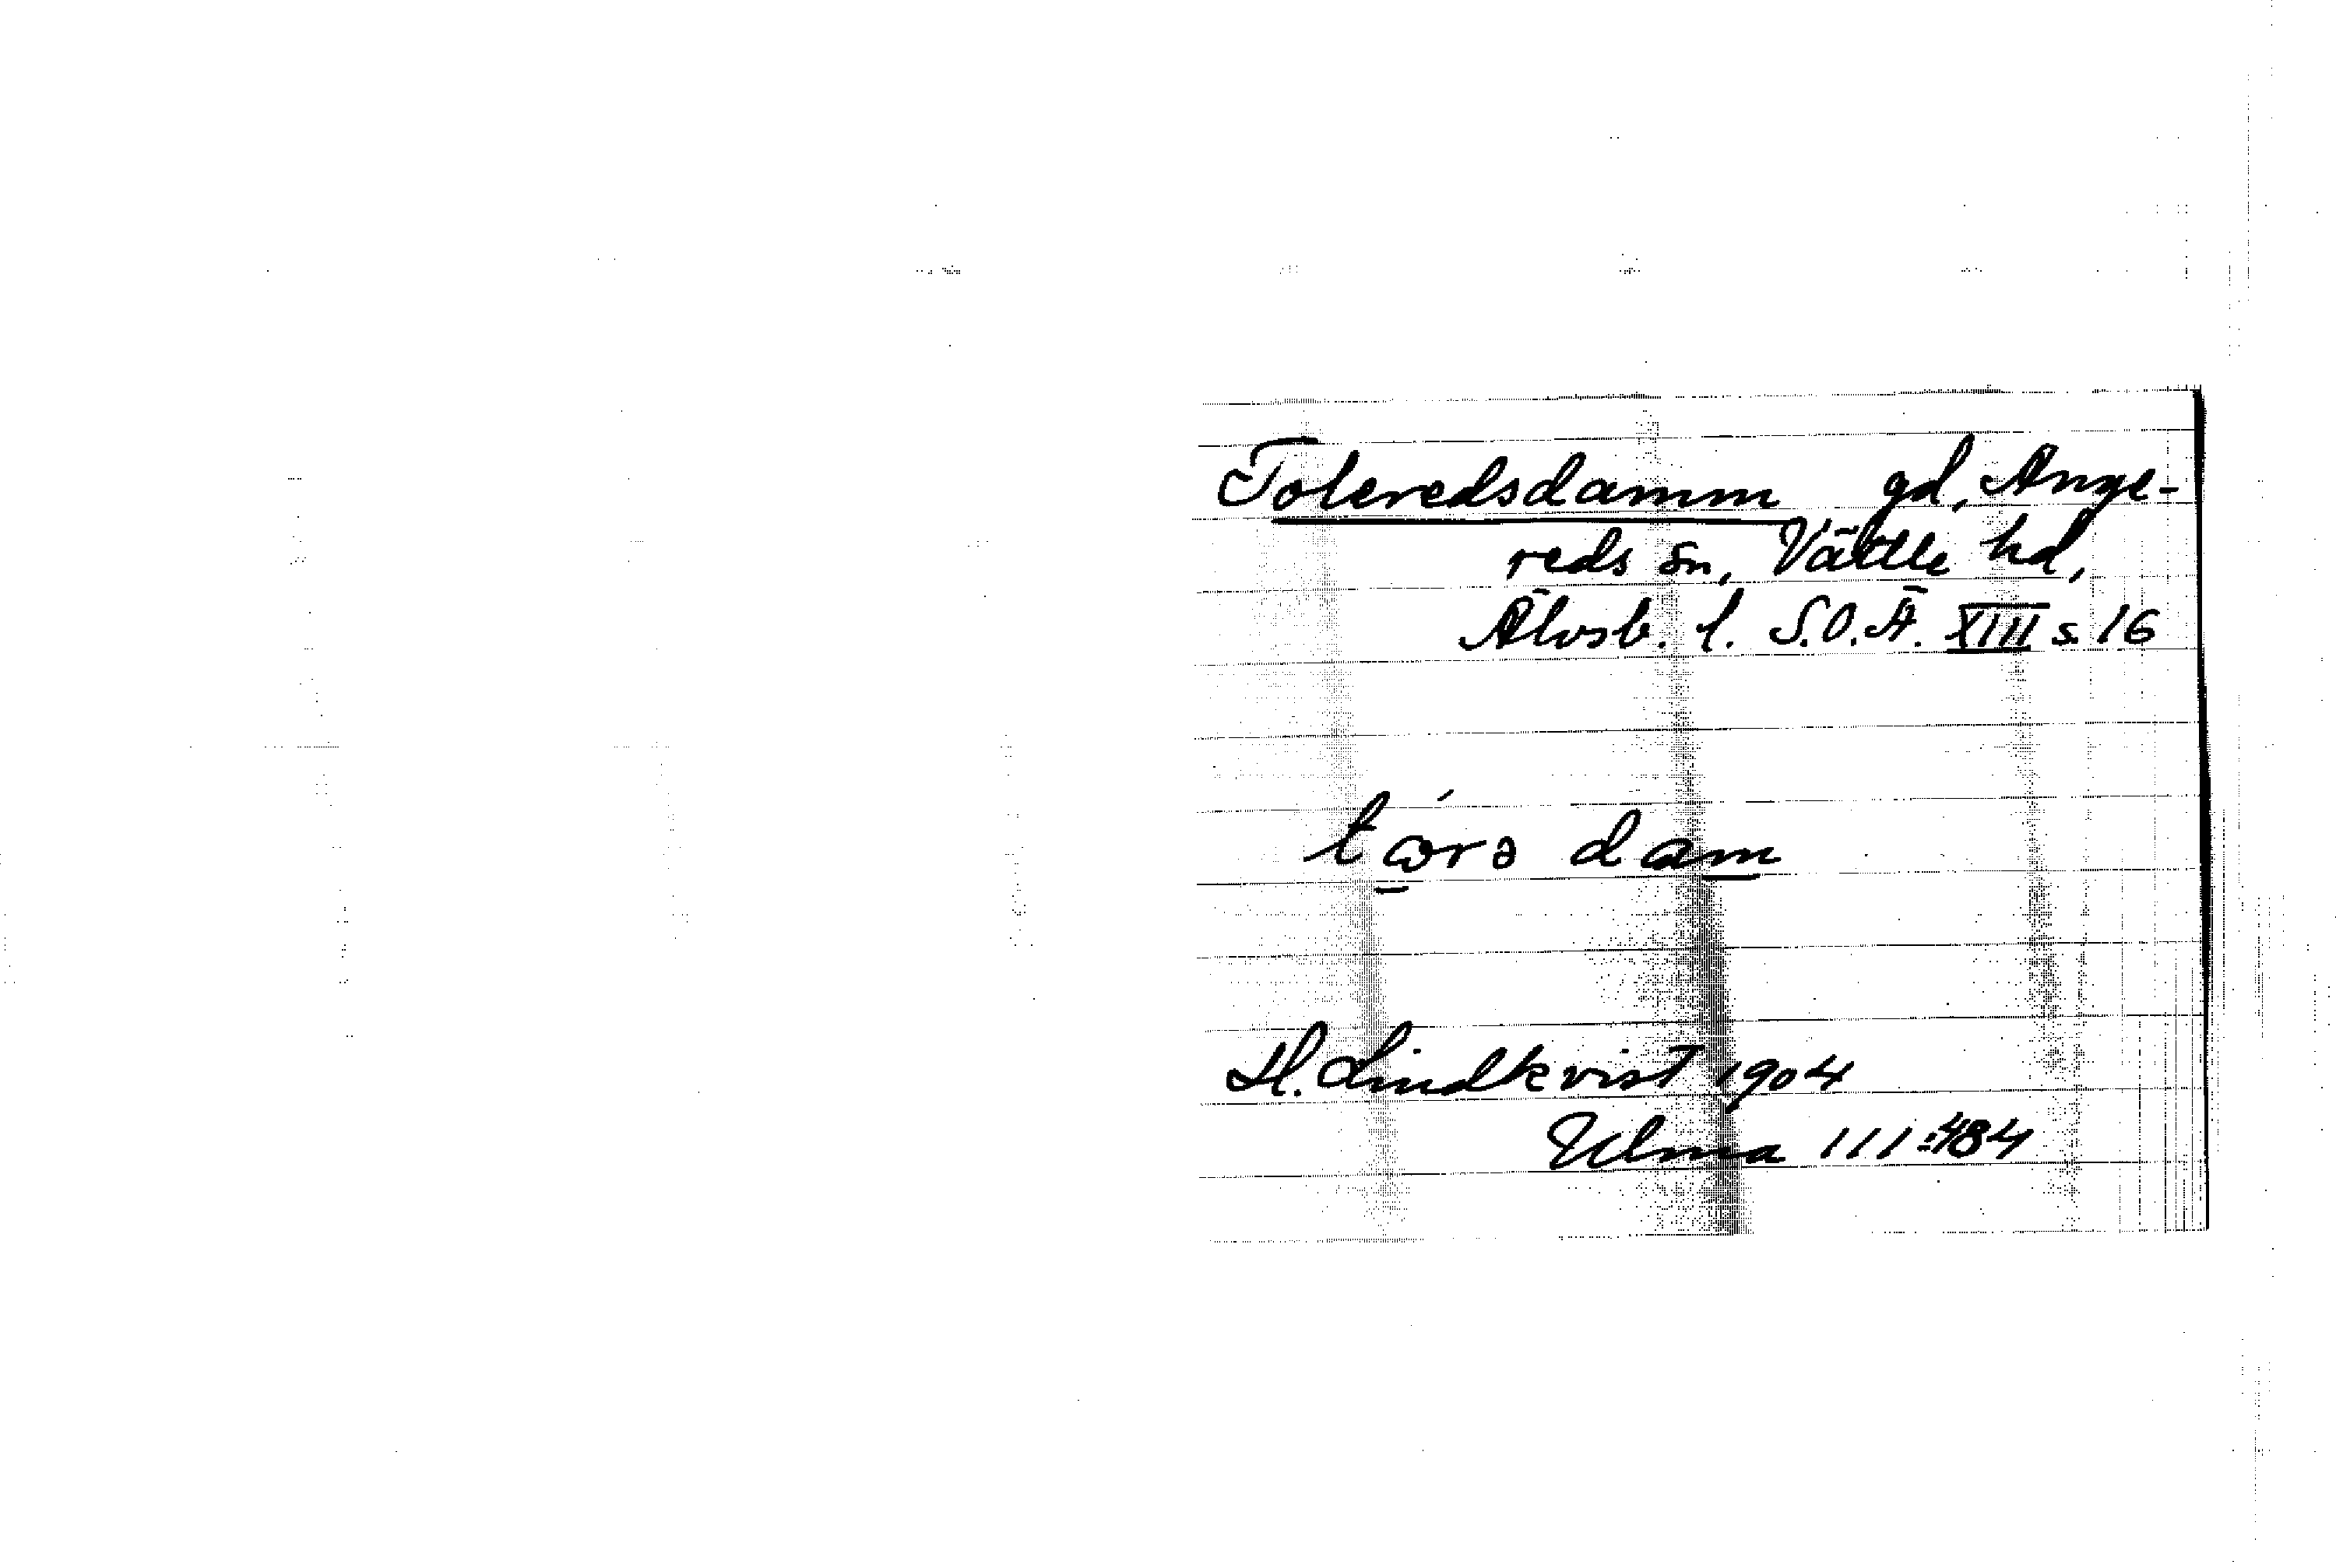 Toleredsdamm gd, Ange-
reds sn, Vättle hd,
Älvsb. l. S.O.Ä. XIII s. 16
dam
H. Lindkvist 1904
Ulma 111:484